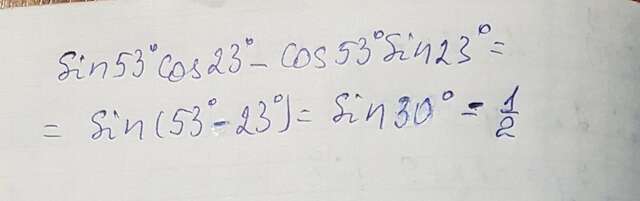 Sin53°cos23° - cos53°Sin23° =
= Sin(53° - 23°) = Sin30° = 1/2